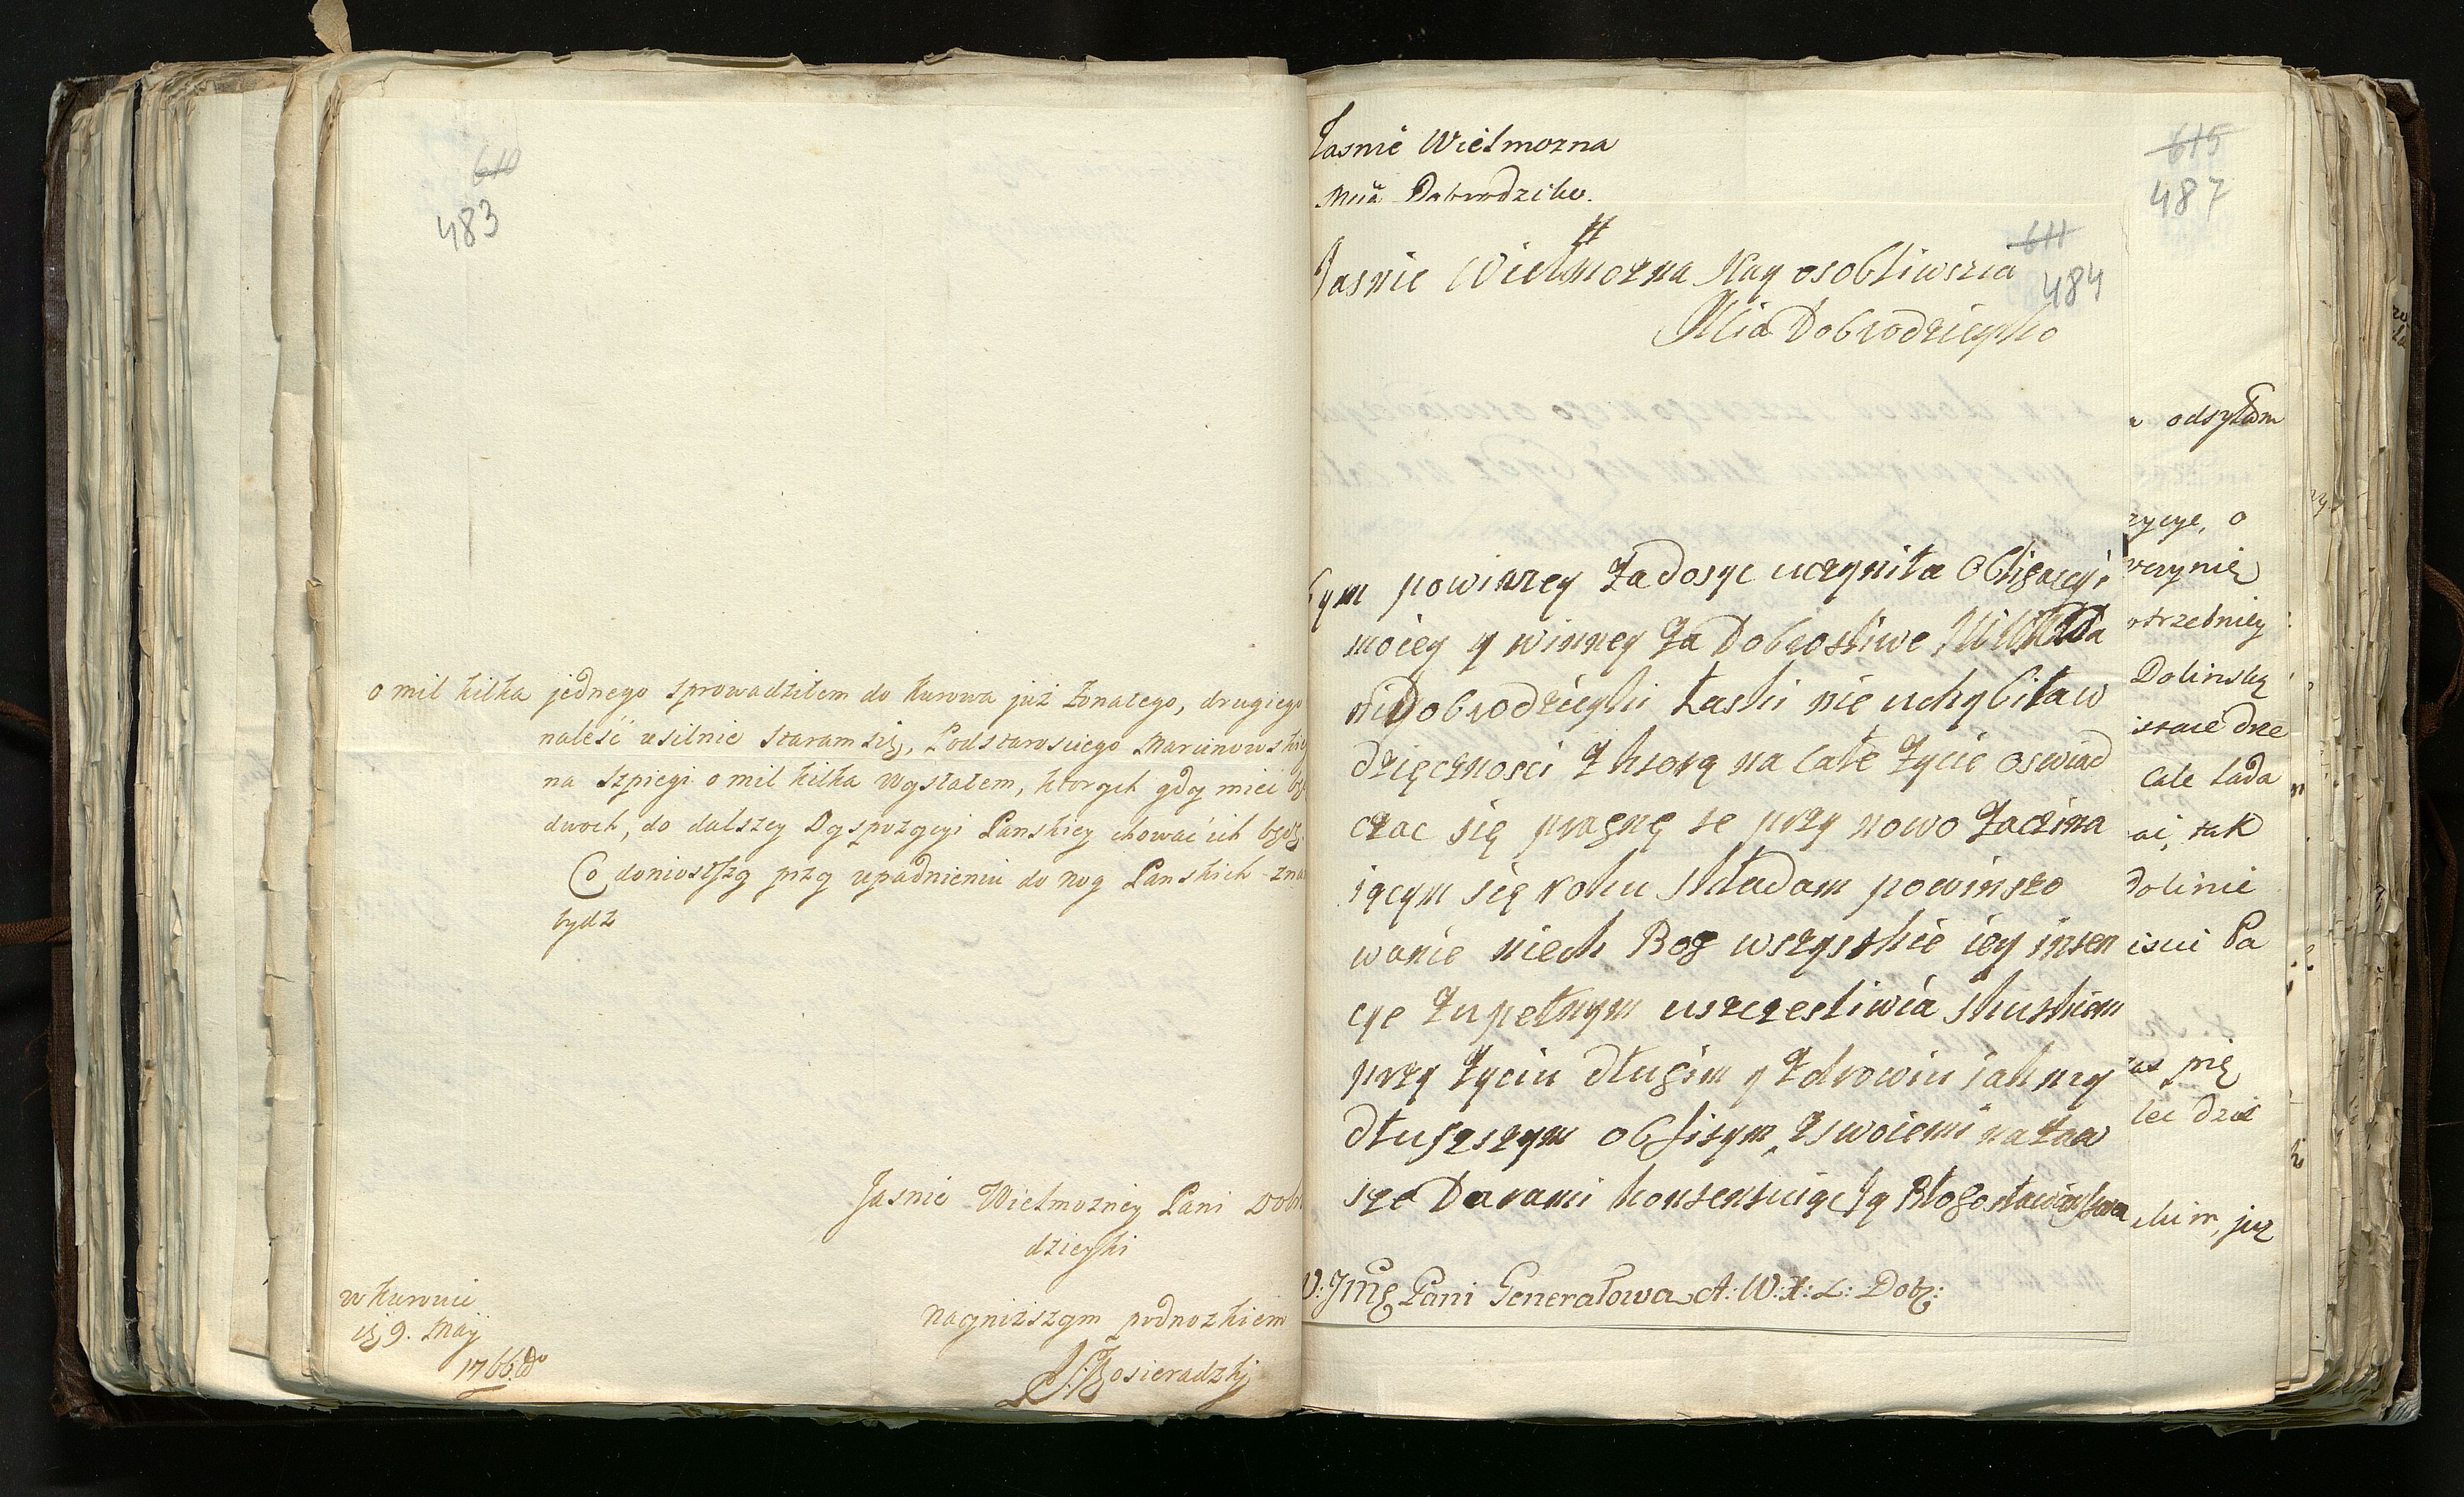 610
483
o mil kilka jednego sprowadziłem do Kurowa już żonatego, drugiego
naleść usilnie staram się, Podstarosciego Marcinowski
na szpiegi o mil kilka wysłałem, ktorych gdy mieć
dwoch, do dalszey Dyspozycyi Panskiey chować ich będę.
Co doniosłszy przy upadnieniu do nog Panskich
bydz
Jasnie Wielmozney Pani Dob
dzieyki
nayniższym podnożkiem
Kosieradzki
w Kurowie
9. Maij
1766
Jasnie Wielmozna
Mcia Dobrodziko.
615
487
Jasnie Wielmozna Nay osobliwsza
Mcia Dobrodzieyko
611
484
bym powinney Zadosyc uczyniła Obligacyi
moiey y winney Za Dobrotliwe
Dobrodzieyki Łaski nie uchybiła w
dzięcznosci Z ktorą na całe Zycie oswiad
czac się pragnę ze przy nowo Zaczina
iącym się roku składam powinszo
wanie niech Bog wszystkie iey inten
cye Zupełnym uszczesliwia skutkiem
przy Zyciu długim y Zdrowiu iak nay
dłuszszym obfitym, Zswoiemi na Zaw
sze Darami konserwuiąc Ją Błogosławienstwa
W: Jmę Pani Generałowa A: W: X: L: Dobz:
odsyłam
zycye, o
uczynię
otrzebniey
Dolinsky
Cale Lada
tak
Dolinie
Pa
pię
już